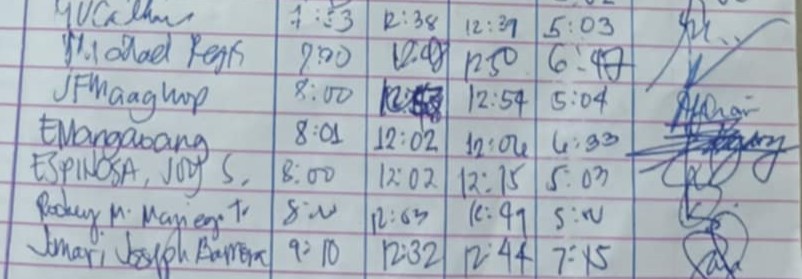 7:53 12:38 12:39 5:03
Regis 7:00 1250 6:47
JFMaaghop 8:00 12:54 5:04
EMangabang 8:01 12:02 12:06 6:33
ESPINOSA, JOY S. 8:00 12:02 12:15 5:03
Rodney M. 8:00 12:03 12:49 5:00
Jomari Joseph Barrera 9:10 12:32 12:44 7:15